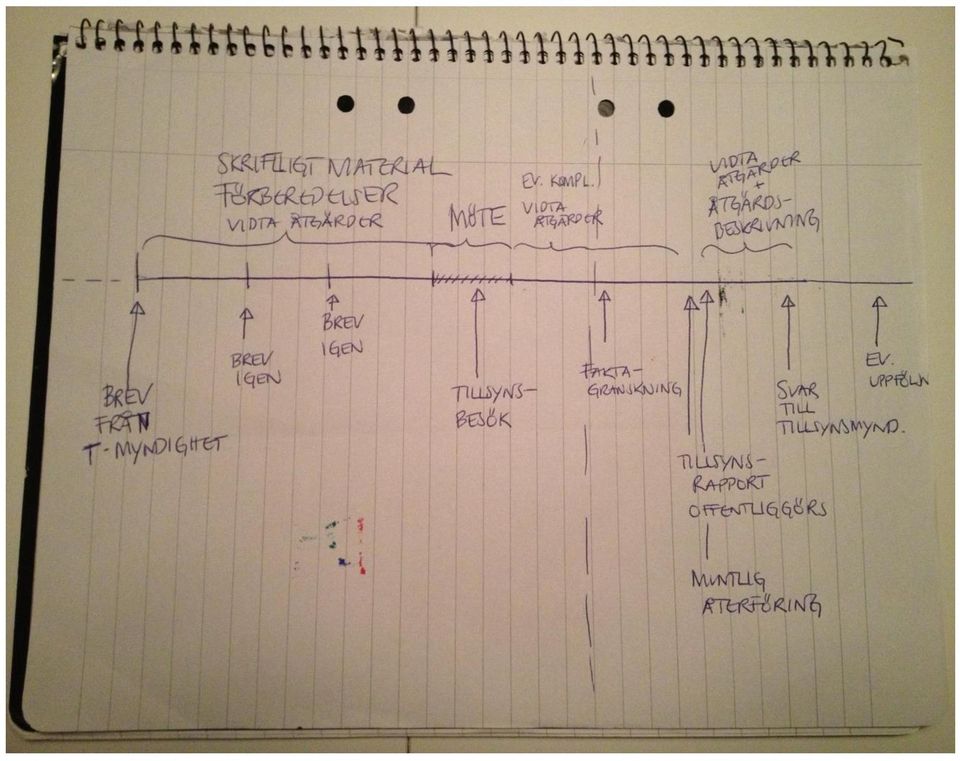 SKRIFTLIGT MATERIAL
FÖRBEREDELSER
VIDTA ÅTGÄRDER
MÖTE
EV. KOMPL.
VIDTA
ÅTGÄRDER
VIDTA
ÅTGÄRDER
+
ÅTGÄRDS-
BESKRIVNING
BREV
FRÅN
T-MYNDIGHET
BREV
IGEN
BREV
IGEN
TILLSYNS-
BESÖK
FAKTA-
GRANSKNING
TILLSYNS-
RAPPORT
OFFENTLIGGÖRS
MUNTLIG
ÅTERFÖRING
SVAR
TILL
TILLSYNSMYND.
EV.
UPPFÖLJN